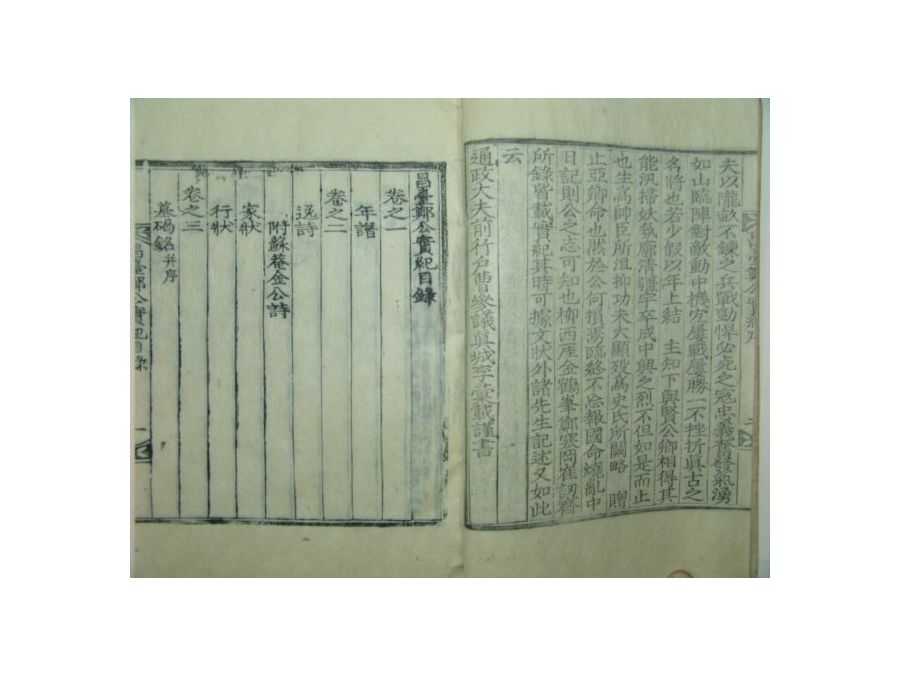 夫以隴畝不鍊之兵戰勁悍必死之寇忠義奮發氣湧
如山臨陣對敵動中機宜屢戰屢勝一不挫折眞古之
名將也若少假以年上結 主知下與賢公卿相得其
能汛掃妖氛廓清疆宇卒成中興之烈不但如是而止
也生爲帥臣所沮抑功未大顯歿爲史氏所闕略 贈
止亞卿命也然於公何損焉臨終不忘報國命燒亂中
日記則公之志可知也柳西厓金鶴峯鄭寒岡崔訒齋
所錄皆載實紀其時可據文狀外諸先生記述又如此
云
通政大夫前行戶曹參議眞城李彙載謹書
昌臺鄭公實紀目錄
卷之一
年譜
卷之二
逸詩
附蘇菴金公詩
家狀
行狀
卷之三
墓碣銘并序
昌臺鄭公實紀目錄 一